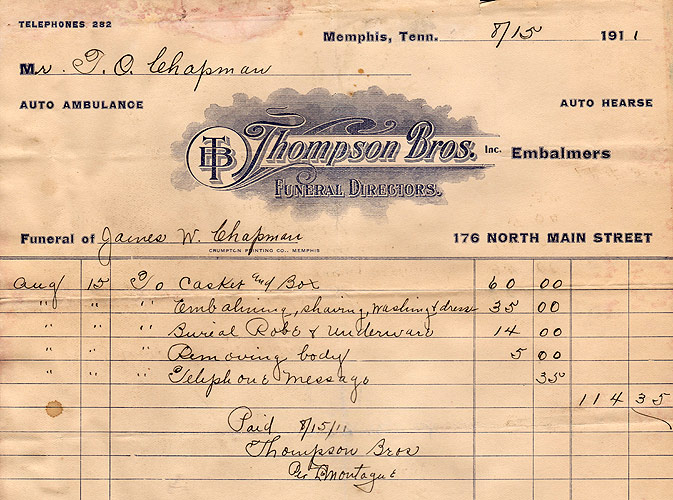 TELEPHONES 282
Memphis, Tenn. 8/15 1911
Mr. T. O. Chapman
AUTO AMBULANCE
AUTO HEARSE
TB Thompson Bros. Inc. Embalmers
FUNERAL DIRECTORS.
Funeral of James W. Chapman
176 NORTH MAIN STREET
CRUMPTON PRINTING CO., MEMPHIS
Aug 15 To Casket and Box 60 00
" " " Embalming, shaving, washing & dress 35 00
" " " Burial Robe & Underware 14 00
" " " Removing body 5 00
" " " Telephone Message 35
114 35
Paid 8/15/11
Thompson Bros
Per Montague